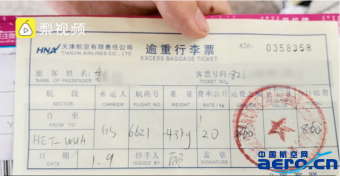 梨视频
HNA 天津航空有限责任公司
TIANJIN AIRLINES CO.,LTD.
逾重行李票
EXCESS BAGGAGE TICKET
X26- 0358358
旅客姓名
NAME OF PASSENGER
客票号码
TICKET NO.
航段 SECTOR 承运人 CARRIER 航班号 FLIGHT NO. 重量 WEIGHT 费率/公斤
自至 HET-WUA GS 6621 43kg 20 860 860
日期 DATE 1.9 经手人 ISSUED BY 盖章
中国航空网
aero.cn